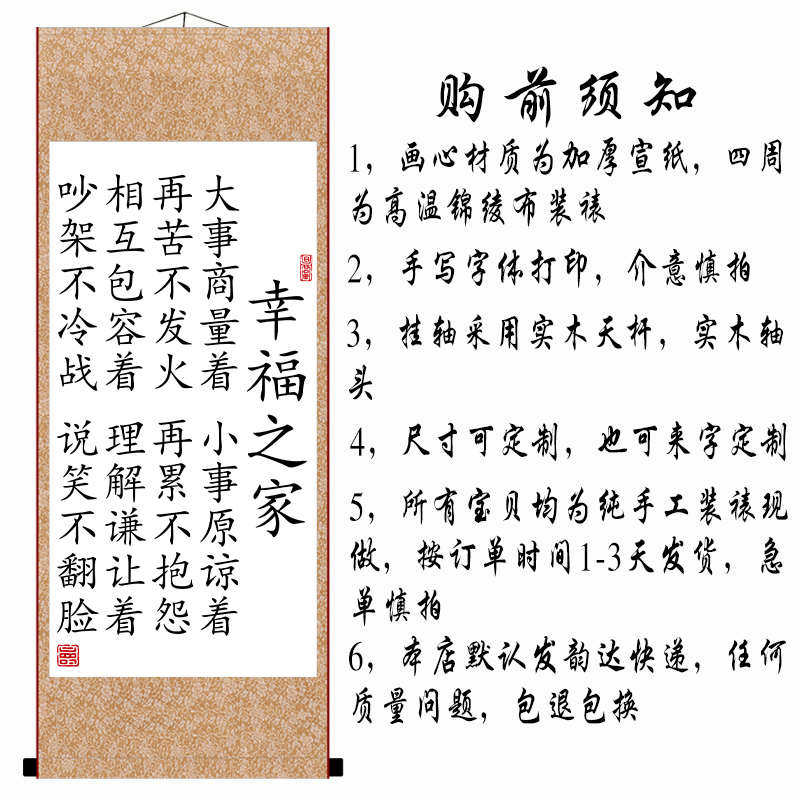 幸福之家
大事商量着 小事原谅着
再苦不发火 再累不抱怨
相互包容着 理解谦让着
吵架不冷战 说笑不翻脸
购前须知
1，画心材质为加厚宣纸，四周
为高温锦绫布装裱
2，手写字体打印，介意慎拍
3，挂轴采用实木天杆，实木轴
头
4，尺寸可定制，也可来字定制
5，所有宝贝均为纯手工装裱现
做，按订单时间1-3天发货，急
单慎拍
6，本店默认发韵达快递，任何
质量问题，包退包换